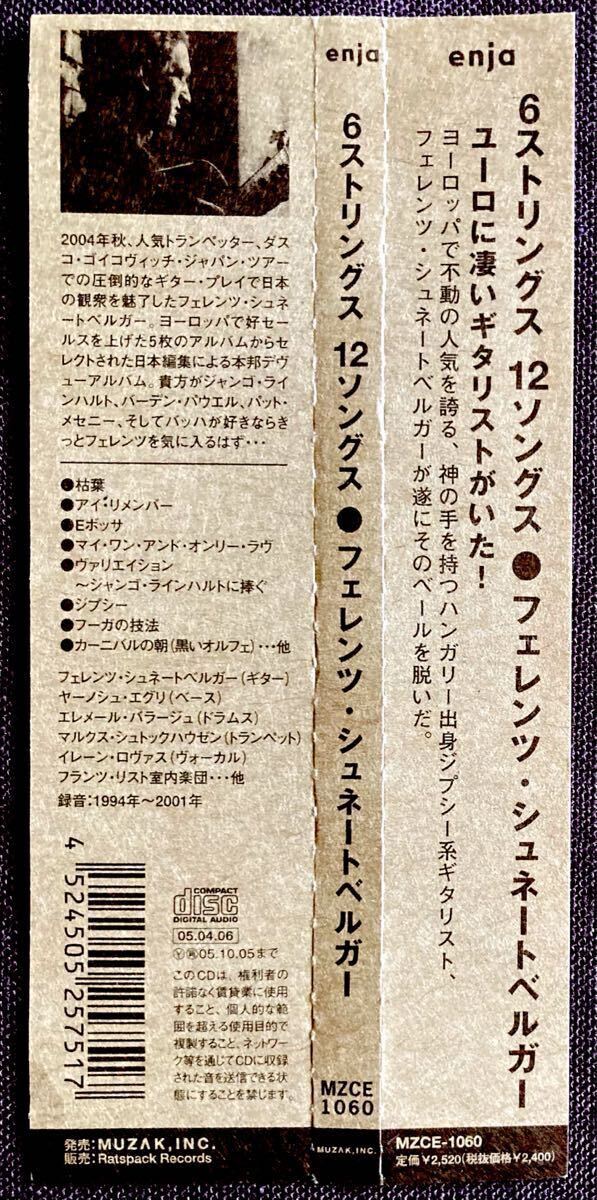 enja
6ストリングス 12ソングス ● フェレンツ・シュネートベルガー
ユーロに凄いギタリストがいた!
ヨーロッパで不動の人気を誇る、神の手を持つハンガリー出身ジプシー系ギタリスト、
フェレンツ・シュネートベルガーが遂にそのベールを脱いだ。
MZCE-1060
定価¥2,520(税抜価格¥2,400)
enja
6ストリングス 12ソングス ● フェレンツ・シュネートベルガー
MZCE
1060
MUZAK, INC.
2004年秋、人気トランペッター、ダス
コ・ゴイコヴィッチ・ジャパン・ツアー
での圧倒的なギター・プレイで日本
の観衆を魅了したフェレンツ・シュネ
ートベルガー。ヨーロッパで好セー
ルスを上げた5枚のアルバムからセ
レクトされた日本編集による本邦デヴ
ューアルバム。貴方がジャンゴ・ライ
ンハルト、バーデン・パウエル、パット・
メセニー、そしてバッハが好きならき
っとフェレンツを気に入るはず・・・
●枯葉
●アイ・リメンバー
●Eボッサ
●マイ・ワン・アンド・オンリー・ラヴ
●ヴァリエイション
〜ジャンゴ・ラインハルトに捧ぐ
●ジプシー
●フーガの技法
●カーニバルの朝(黒いオルフェ)・・・他
フェレンツ・シュネートベルガー(ギター)
ヤーノシュ・エグリ(ベース)
エレメール・バラージュ(ドラムス)
マルクス・シュトックハウゼン(トランペット)
イレーン・ロヴァス(ヴォーカル)
フランツ・リスト室内楽団・・・他
録音:1994年〜2001年
4 524505 257517
COMPACT
disc
DIGITAL AUDIO
05.04.06
Ⓨ㊢05.10.05まで
このCDは、権利者の
許諾なく賃貸業に使用
すること、個人的な範
囲を超える使用目的で
複製すること、ネットワー
ク等を通じてCDに収録
された音を送信できる状
態にすることを禁じます。
発売:MUZAK, INC.
販売:Ratspack Records